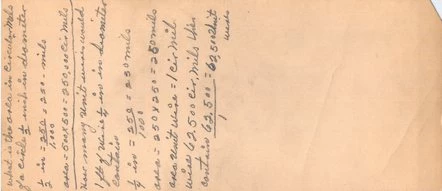 what is the area in Circular Mils
of a circle ½ inch in diameter
½ in = 250/1,000 = 250 - mils
area = 500 x 500 = 250,000 Cir Mils
How many Unit wires would
1 ft of Wire ¼ in in diameter
contain
¼ in = 250/1000 = 250 mils
area = 250 x 250 = 250 mils
area Unit Wire = 1 Cir Mil
Wire 62,500 Cir, Mils
contain 62,500/1 = 62,500 Unit
wires